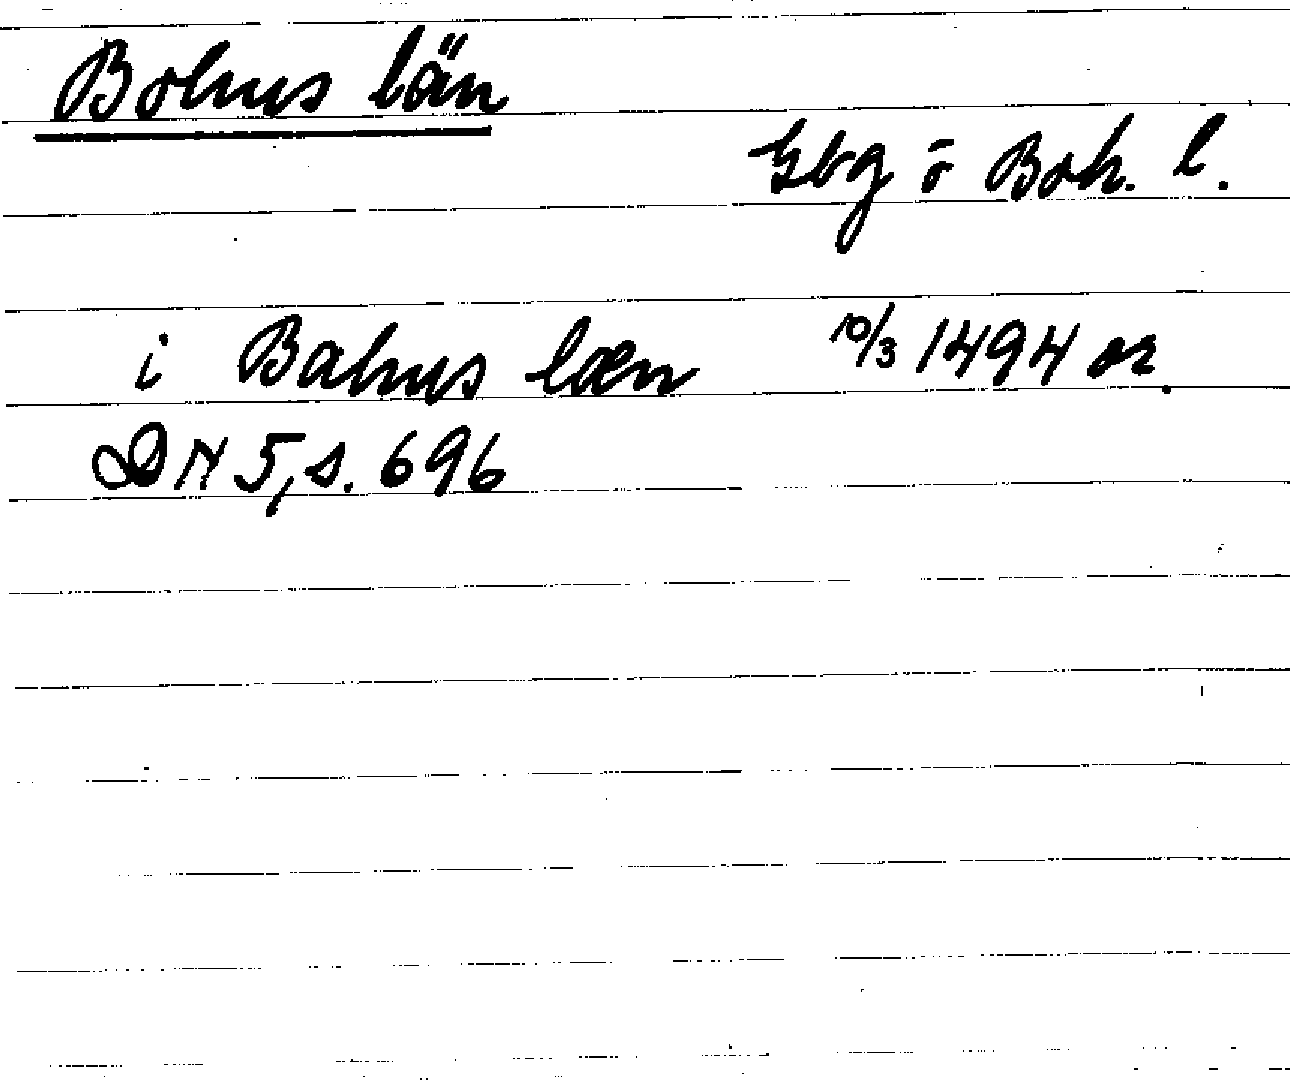 Bohus län
Gbg o Boh. l.
i Bahus læn 10/3 1494 or.
DN 5, s. 696